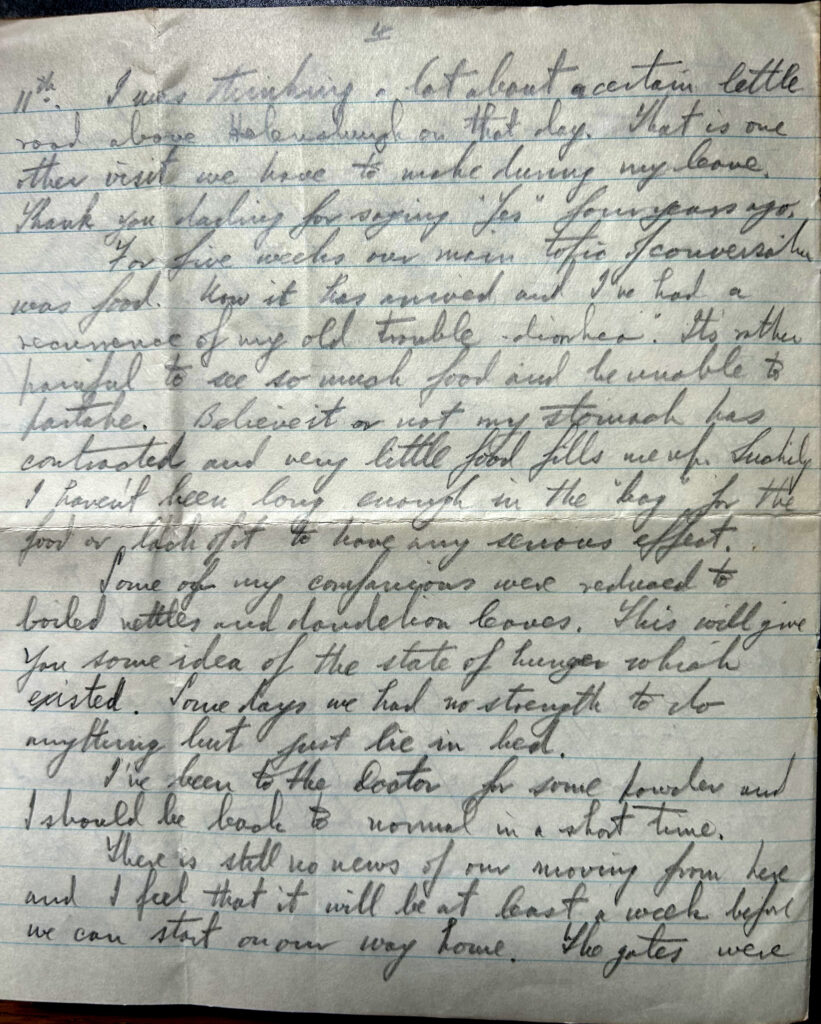 4
11th. I was thinking a lot about a certain little
road above on that day. That is one
other visit we have to make during my leave.
Thank you darling for saying "Yes" four years ago.
For five weeks our main topic of conversation
was food. Now it has arrived and I've had a
recurrence of my old trouble "diorrhea". It's rather
painful to see so much food and be unable to
partake. Believe it or not my stomach has
contracted and very little food fills me up. Luckily
I haven't been long enough in the "bag" for the
food or lack of it to have any serious effect.
Some of my companions were reduced to
boiled nettles and dandelion leaves. This will give
you some idea of the state of hunger which
existed. Some days we had no strength to do
anything but just lie in bed.
I've been to the Doctor for some powder and
I should be back to normal in a short time.
There is still no news of our moving from here
and I feel that it will be at least a week before
we can start on our way home. The gates were